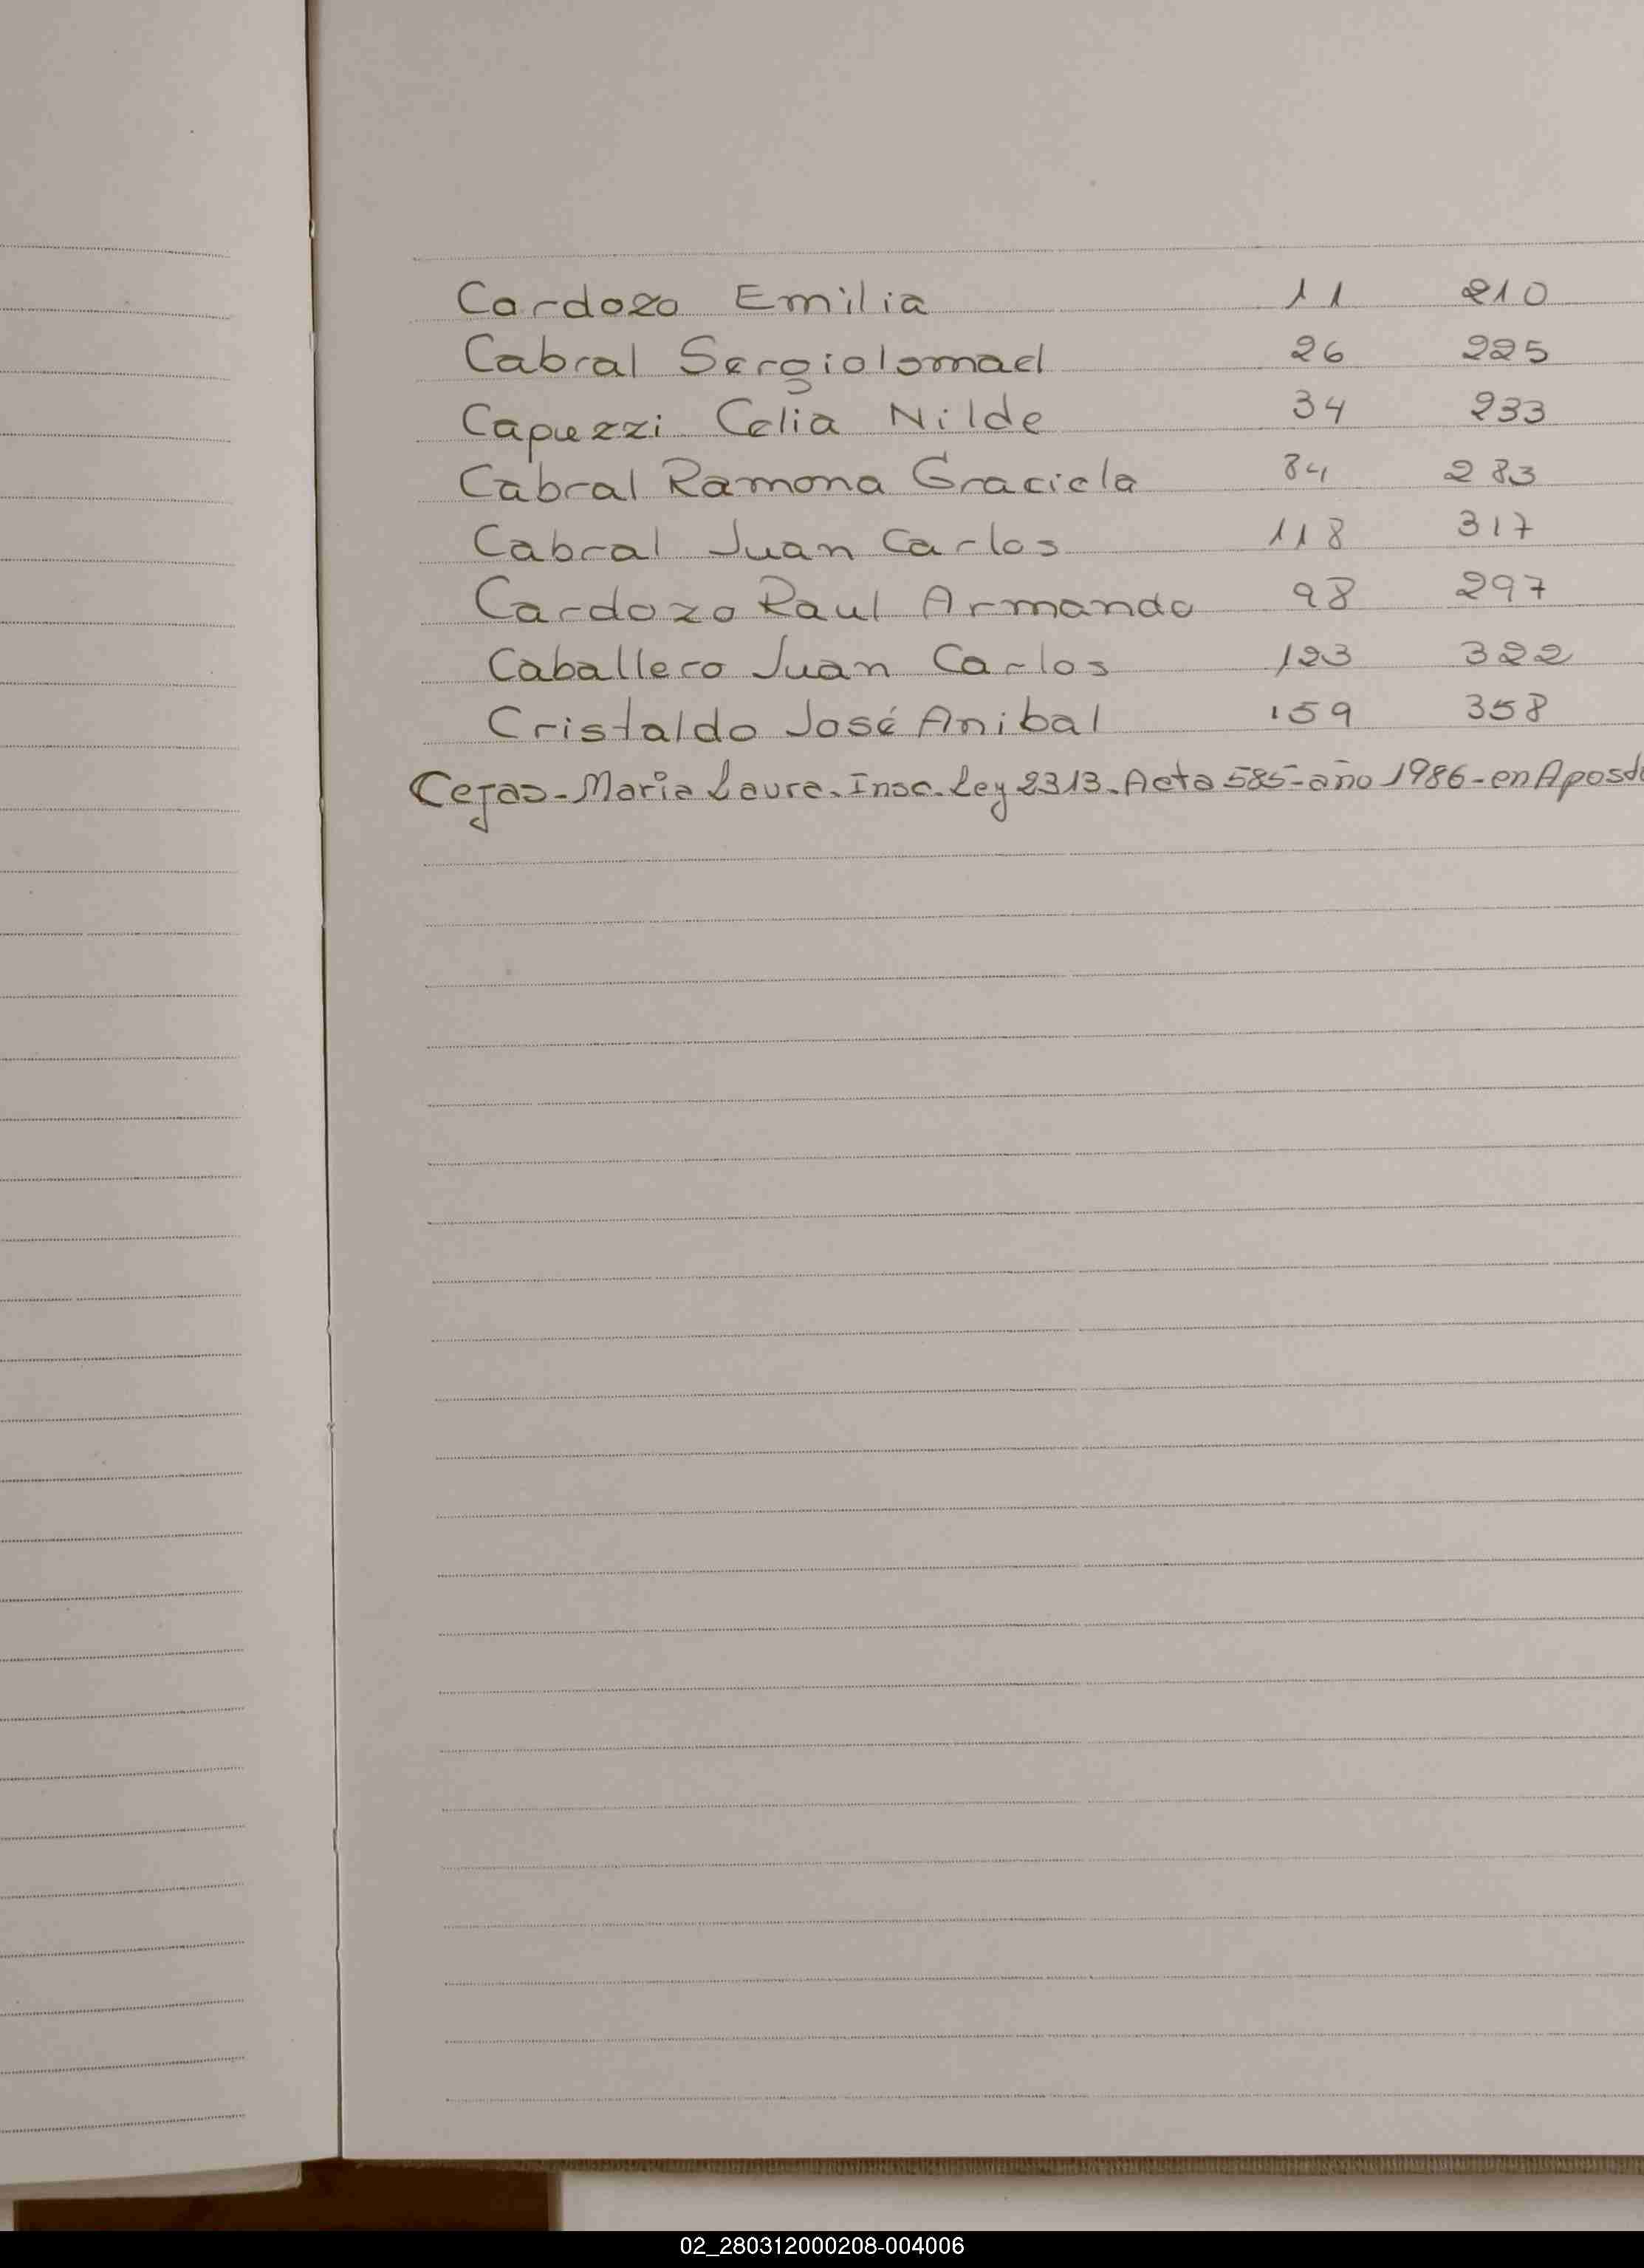 Cardozo Emilia 11 210
Cabral Sergio Ismael 26 225
Capuzzi Celia Nilde 34 233
Cabral Ramona Graciela 84 283
Cabral Juan Carlos 118 317
Cardozo Raul Armando 98 297
Caballero Juan Carlos 123 322
Cristaldo José Anibal 159 358
Cejas - Maria Laura. Insc. Ley 2313. Acta 585 - año 1986 - en Aposto
02_280312000208-004006